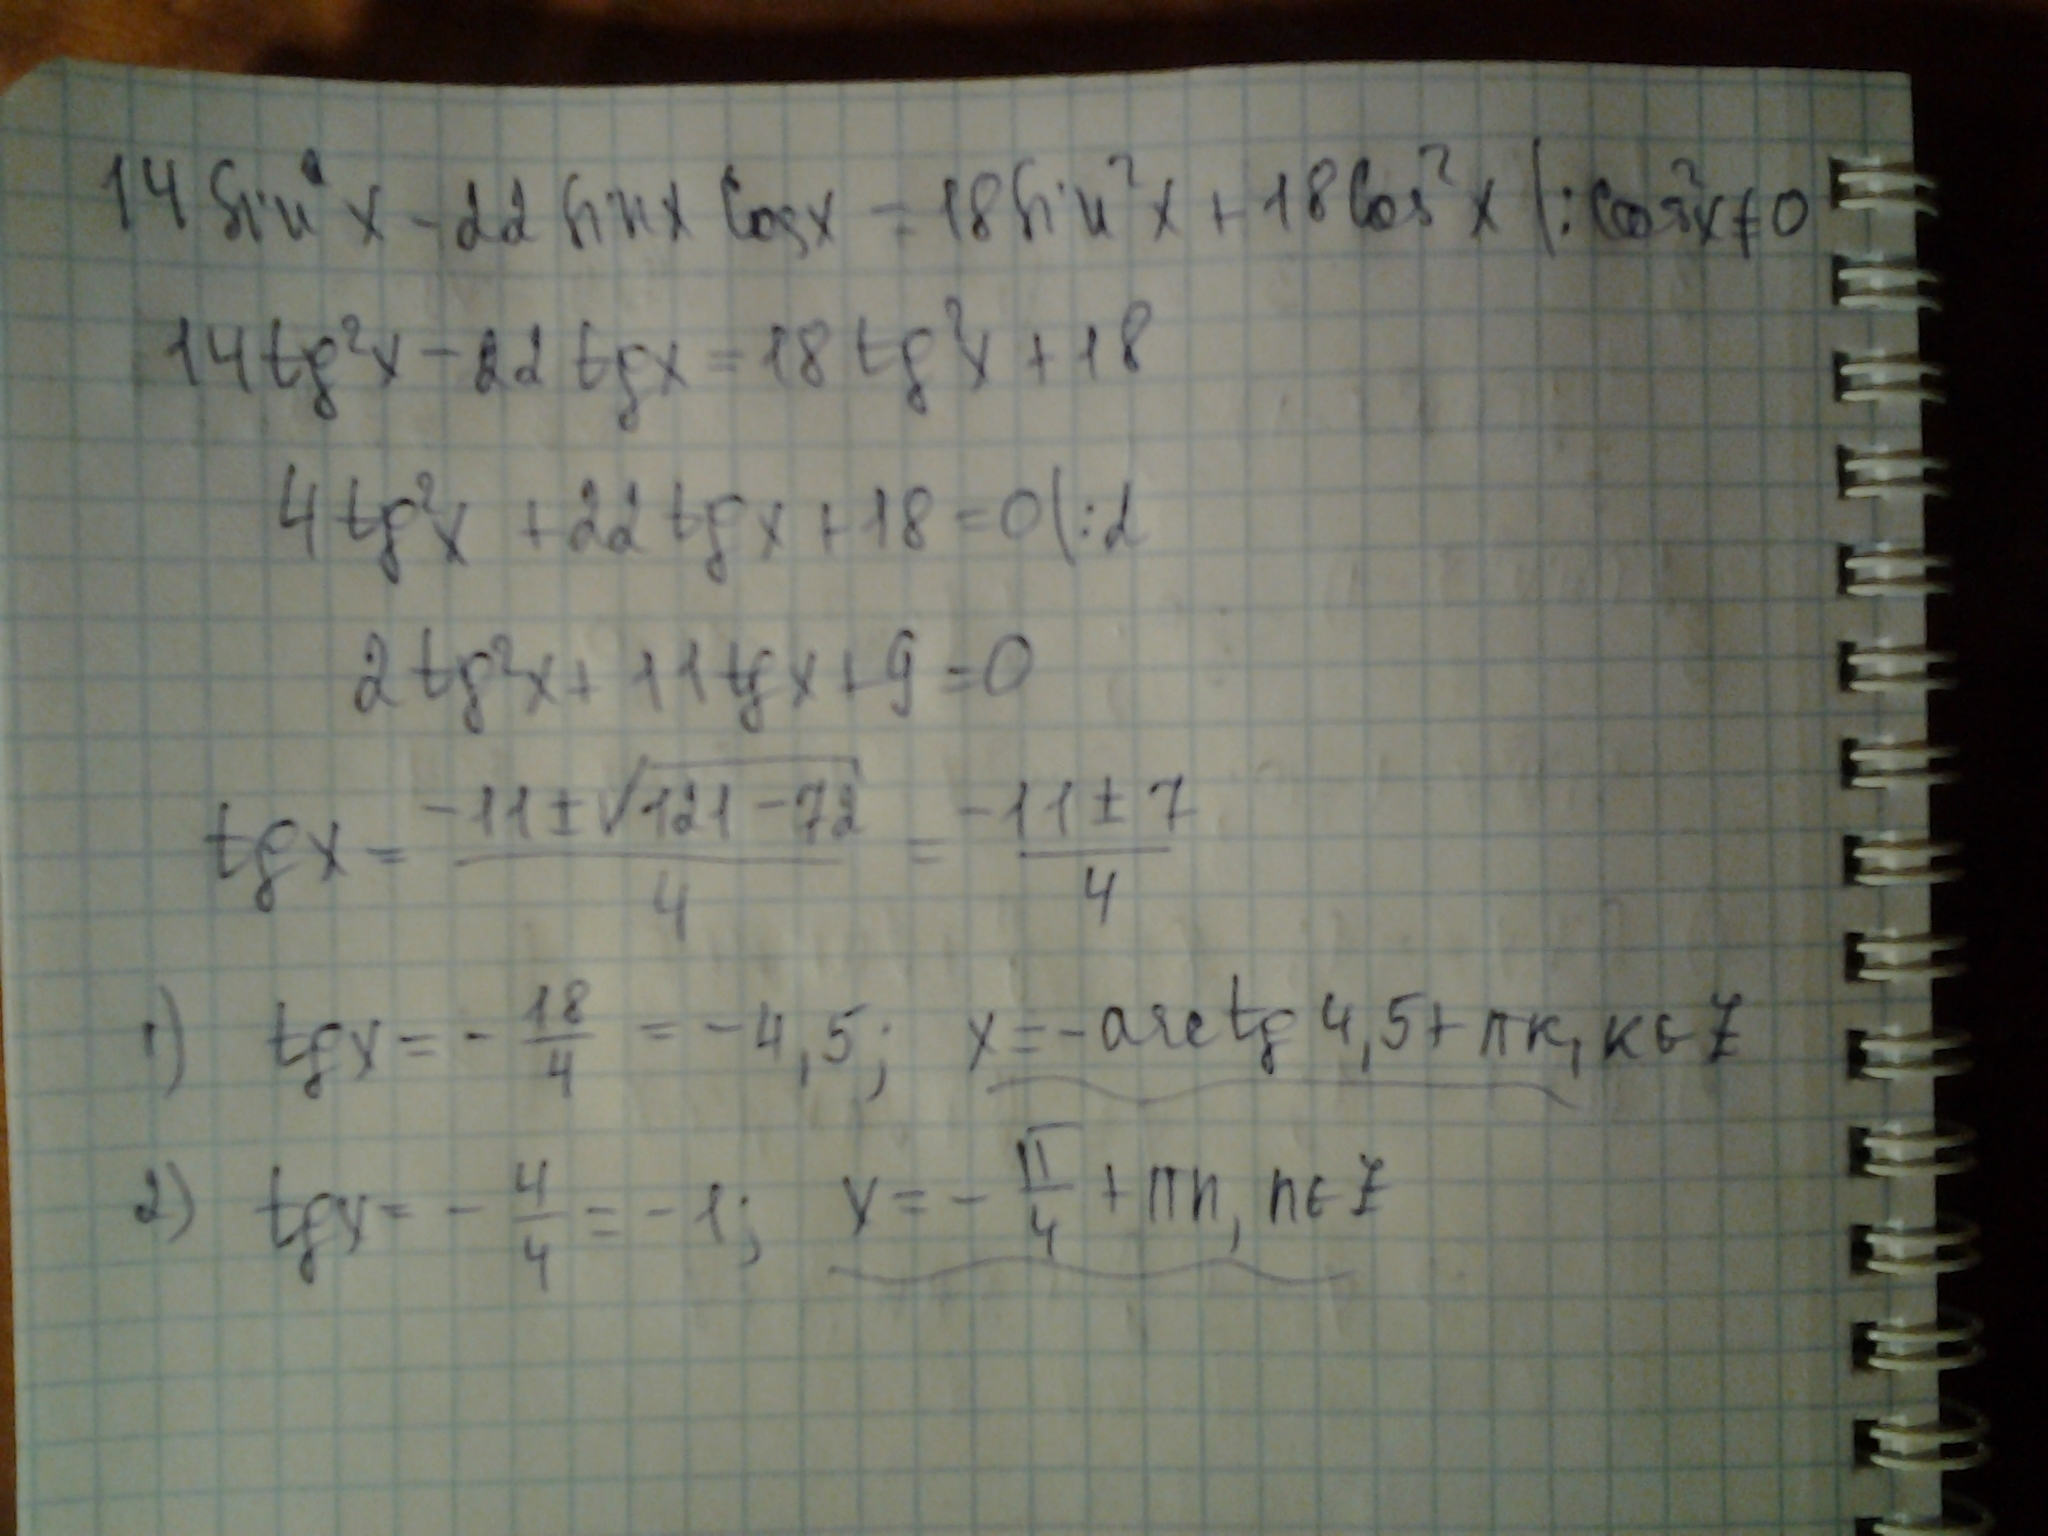 14 sin²x - 22 sinx cosx = 18 sin²x + 18 cos²x |: cos²x ≠ 0
14 tg²x - 22 tgx = 18 tg²x + 18
4 tg²x + 22 tgx + 18 = 0 |: 2
2 tg²x + 11 tgx + 9 = 0
tgx = (-11 ± √(121 - 72))/4 = (-11 ± 7)/4
1) tgx = - 18/4 = - 4,5; x = - arctg 4,5 + πk, k ∈ Z
2) tgx = - 4/4 = - 1; x = - π/4 + πn, n ∈ Z